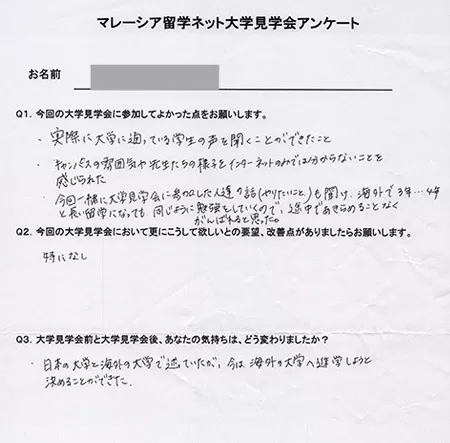 マレーシア留学ネット大学見学会アンケート
お名前
Q1. 今回の大学見学会に参加してよかった点をお願いします。
・実際に大学に通っている学生の声を聞くことができたこと
・キャンパスの雰囲気や先生たちの様子をインターネットのみでは分からないことを
感じられた
・今回一緒に大学見学会に参加した人達の話(やりたいこと)も聞け、海外で3年…4年
と長い留学になっても、同じように勉強をしていくので、途中であきらめることなく
がんばれると思った。
Q2. 今回の大学見学会において更にこうして欲しいとの要望、改善点がありましたらお願いします。
特になし
Q3. 大学見学会前と大学見学会後、あなたの気持ちは、どう変わりましたか?
・日本の大学と海外の大学で迷っていたが、今は海外の大学へ進学しようと
決めることができた.